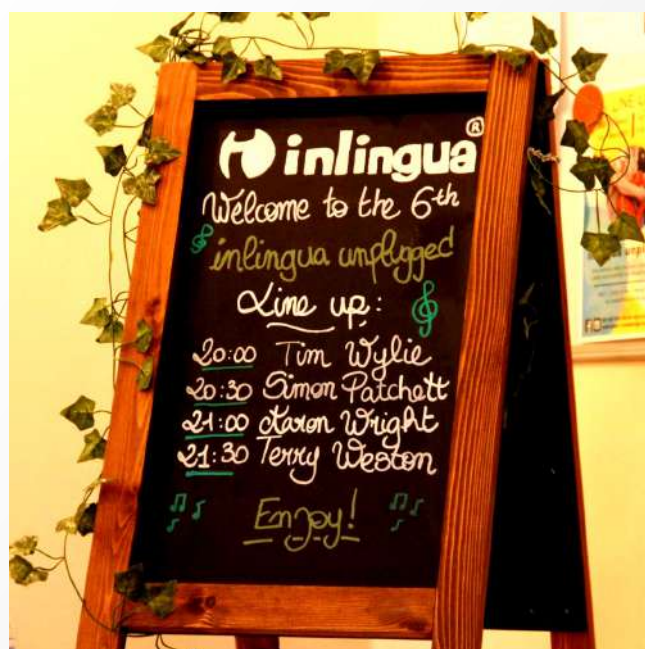 inlingua®
Welcome to the 6th
inlingua unplugged
Line up:
20:00 Tim Wylie
20:30 Simon Patchett
21:00 Karon Wright
21:30 Terry Weston
Enjoy!